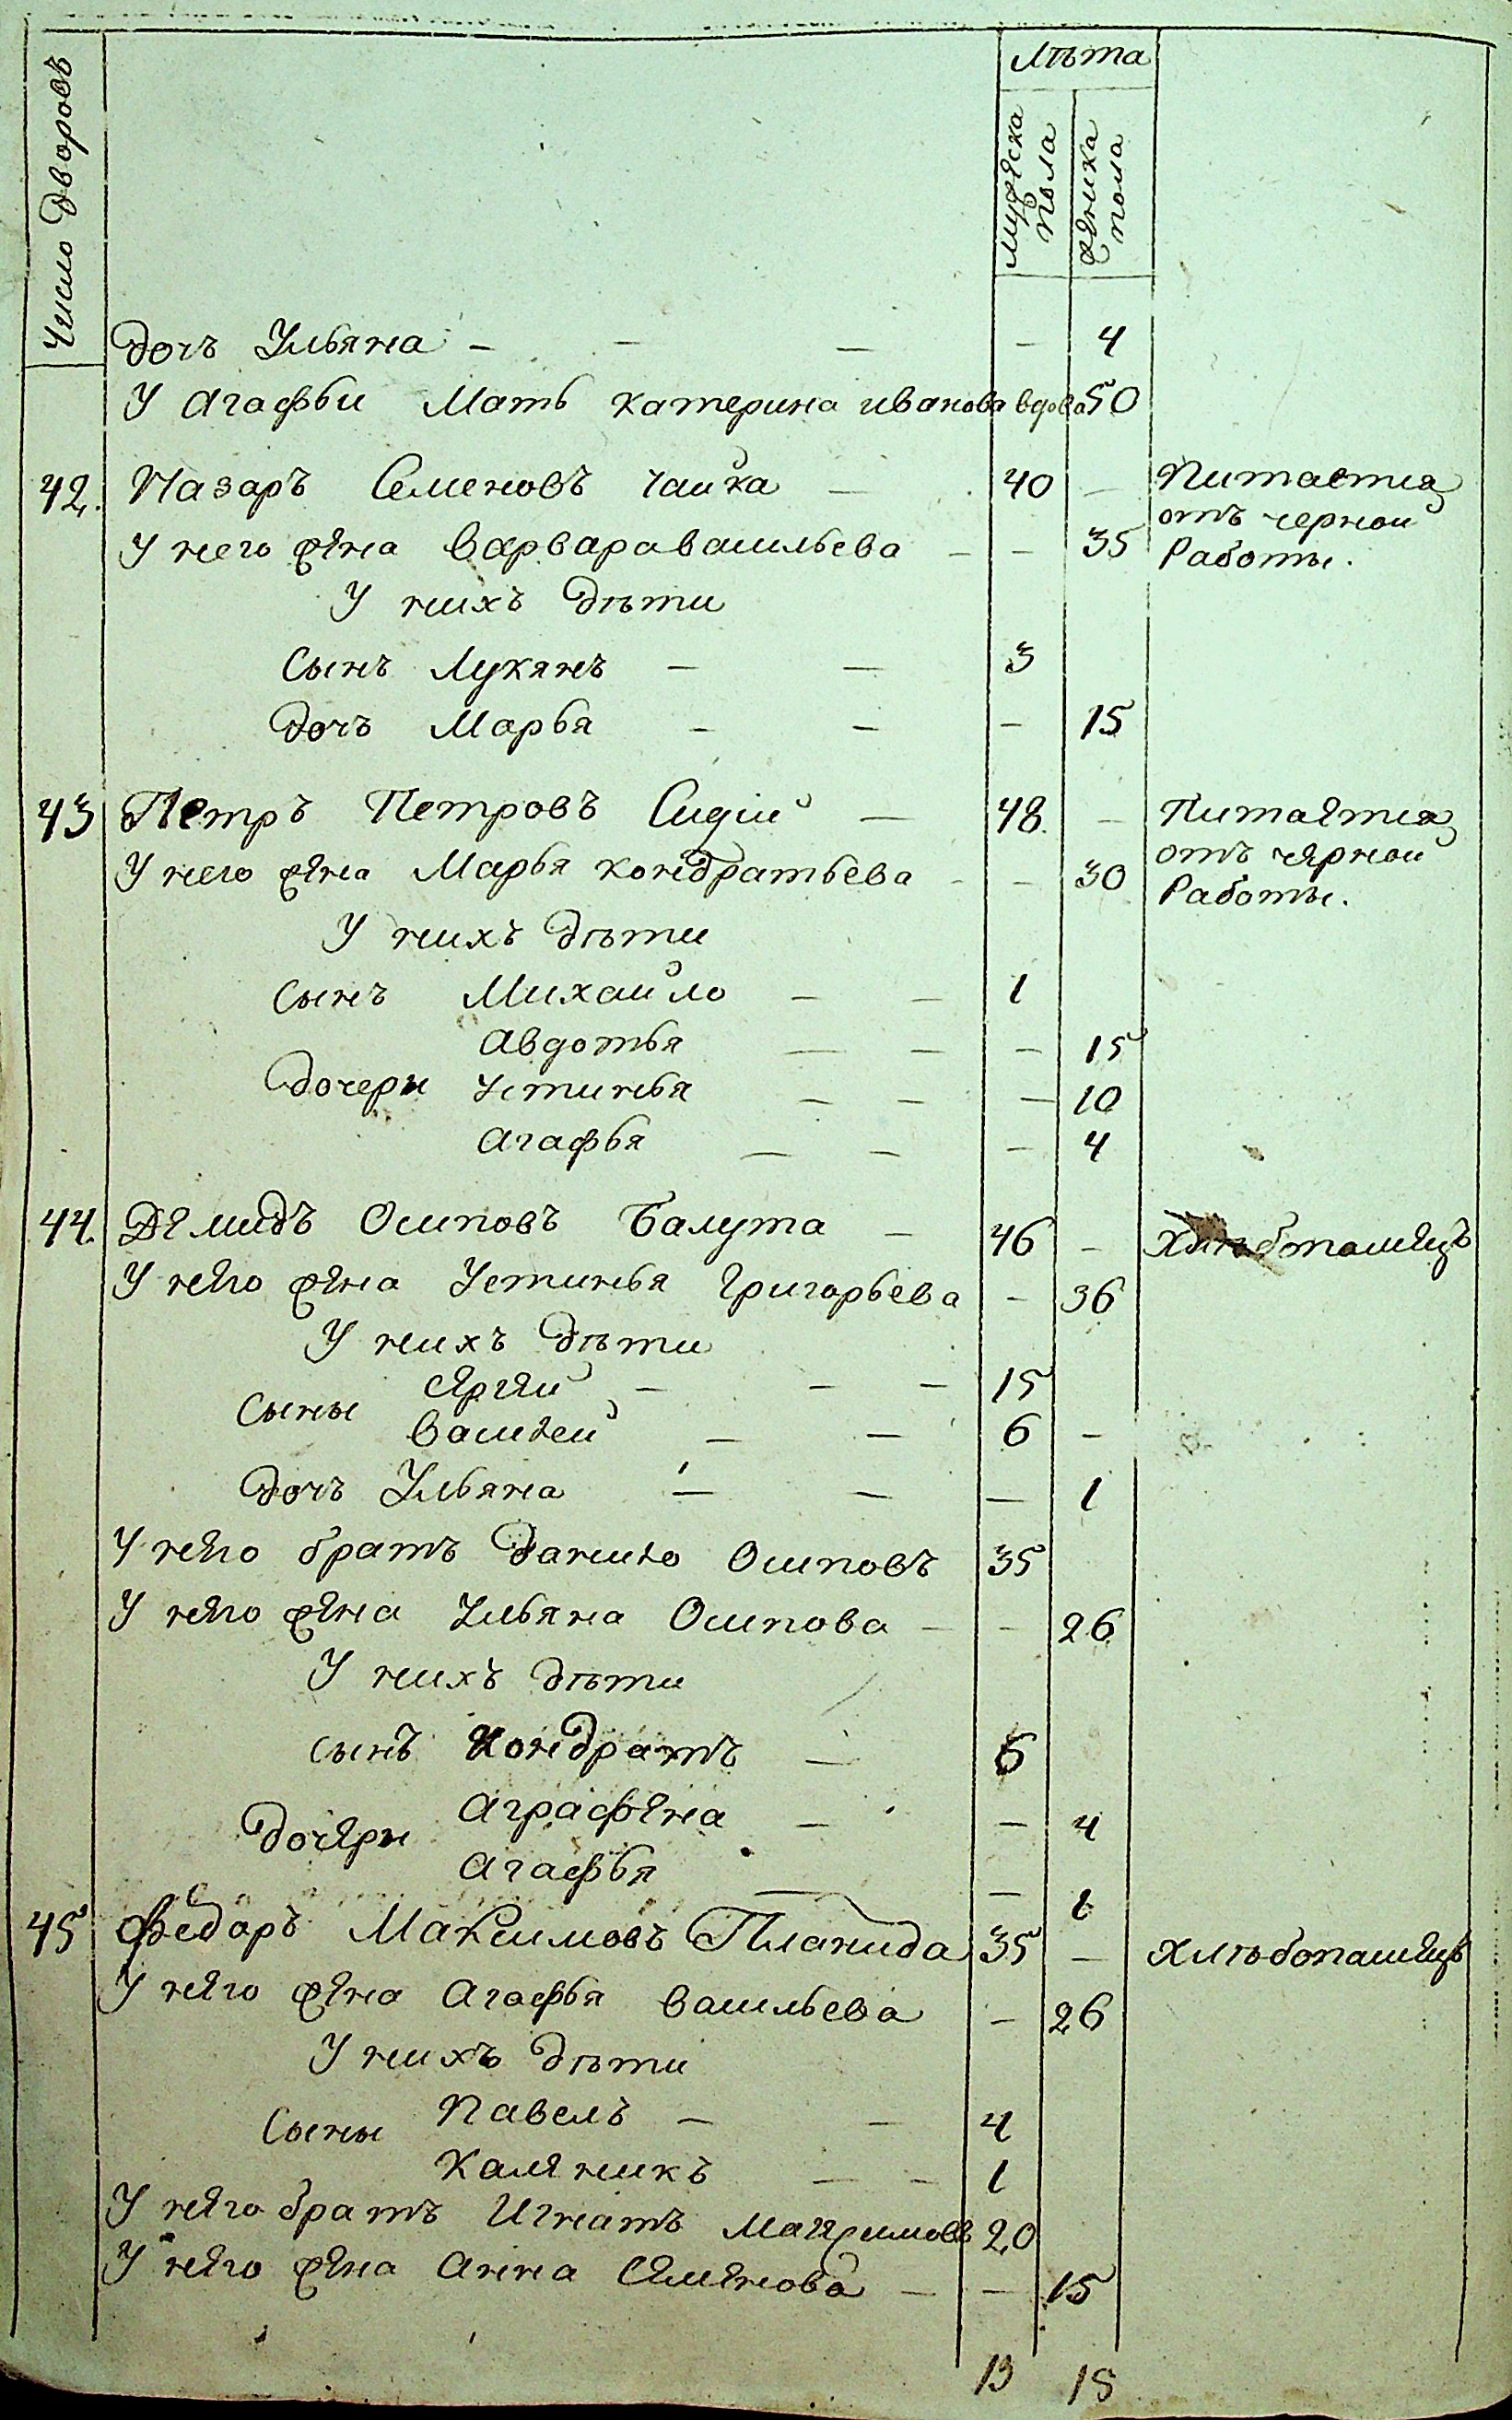 Число дворовъ
лѣта
мужеска пола
женска пола
дочь Ульяна - - - - 4
У Агафьи Мать катерина иванова вдова 50
42. Назаръ Семеновъ чайка - 40 - Питается
отъ черной
У него жена варвара васильева - - 35 Работы.
У нихъ дѣти
Сынъ Лукянъ - - 3
дочь Марья - - - 15
43 Петръ Петровъ Сидій - 48 - Питается
отъ черной
У него жена Марья кондратьева - - 30 Работы.
У нихъ дѣти
Сынъ Михайло - - 1
Авдотья - - - 15
дочери Устинья - - - 10
Агафья - - - 4
44. Демидъ Осиповъ Балута - 46 - Хлѣбопашецъ
У него жена Устинья Григорьева - 36
У нихъ дѣти
Сергей - - - 15
Сыны
василей - - 6 -
дочь Ульяна - - - 1
У него братъ данило Осиповъ 35
У него жена Ульяна Осипова - - 26
У нихъ дѣти
сынъ Кондратъ - 6
Аграфена - - 4
дочери
Агафья - - 1
45 Федоръ Максимовъ Планида 35 - Хлѣбопашецъ
У него жена Агафья васильева - 26
У нихъ дѣти
Павелъ - - 4
Сыны
Каленикъ - - 1
У него братъ Игнатъ Максимовъ 20
У него жена Анна Семенова - - 15
13 15